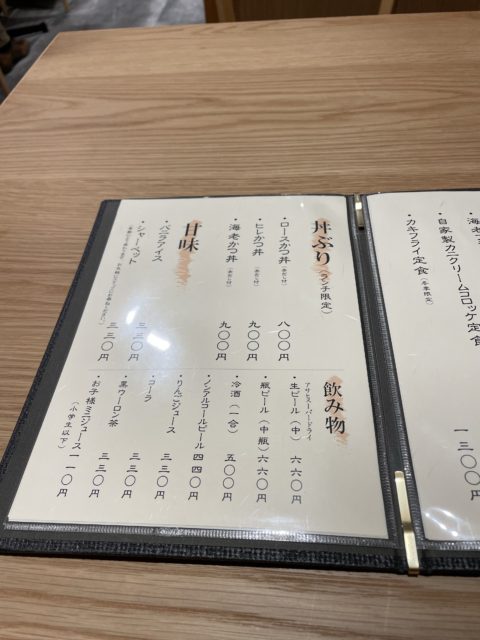 海老
自家製カニクリームコロッケ定食
カキフライ定食(冬季限定)
一三〇〇円
丼ぶり(ランチ限定)
・ロースかつ丼 八〇〇円
・ヒレかつ丼 九〇〇円
・海老かつ丼 九〇〇円
甘味
・バニラアイス 三三〇円
・シャーベット 三三〇円
飲み物
アサヒスーパードライ
・生ビール(中) 六六〇円
・瓶ビール(中瓶) 六六〇円
・冷酒(一合) 五〇〇円
・ノンアルコールビール 四四〇円
・りんごジュース 三三〇円
・コーラ 三三〇円
・黒ウーロン茶 三三〇円
・お子様ミニジュース 一一〇円
(小学生以下)